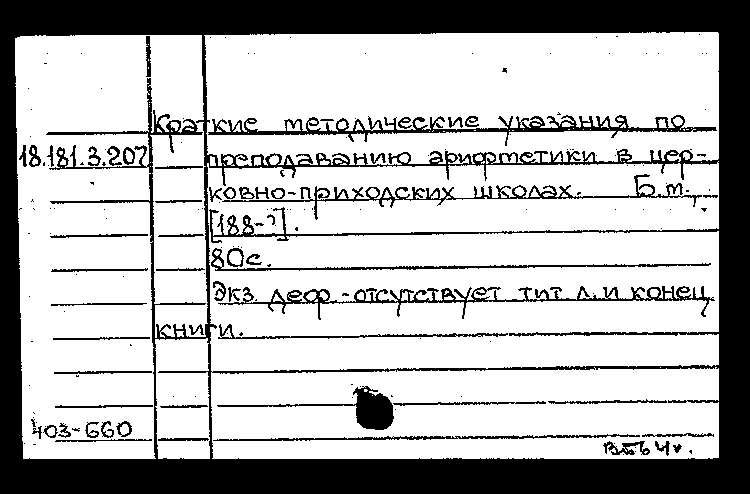 Краткие методические указания по
18.181.3.207 преподаванию арифметики в цер-
ковно-приходских школах. Б.м.,
[188-?].
80с.
Экз. деф.-отсутствует тит л. и конец
книги.
403-660